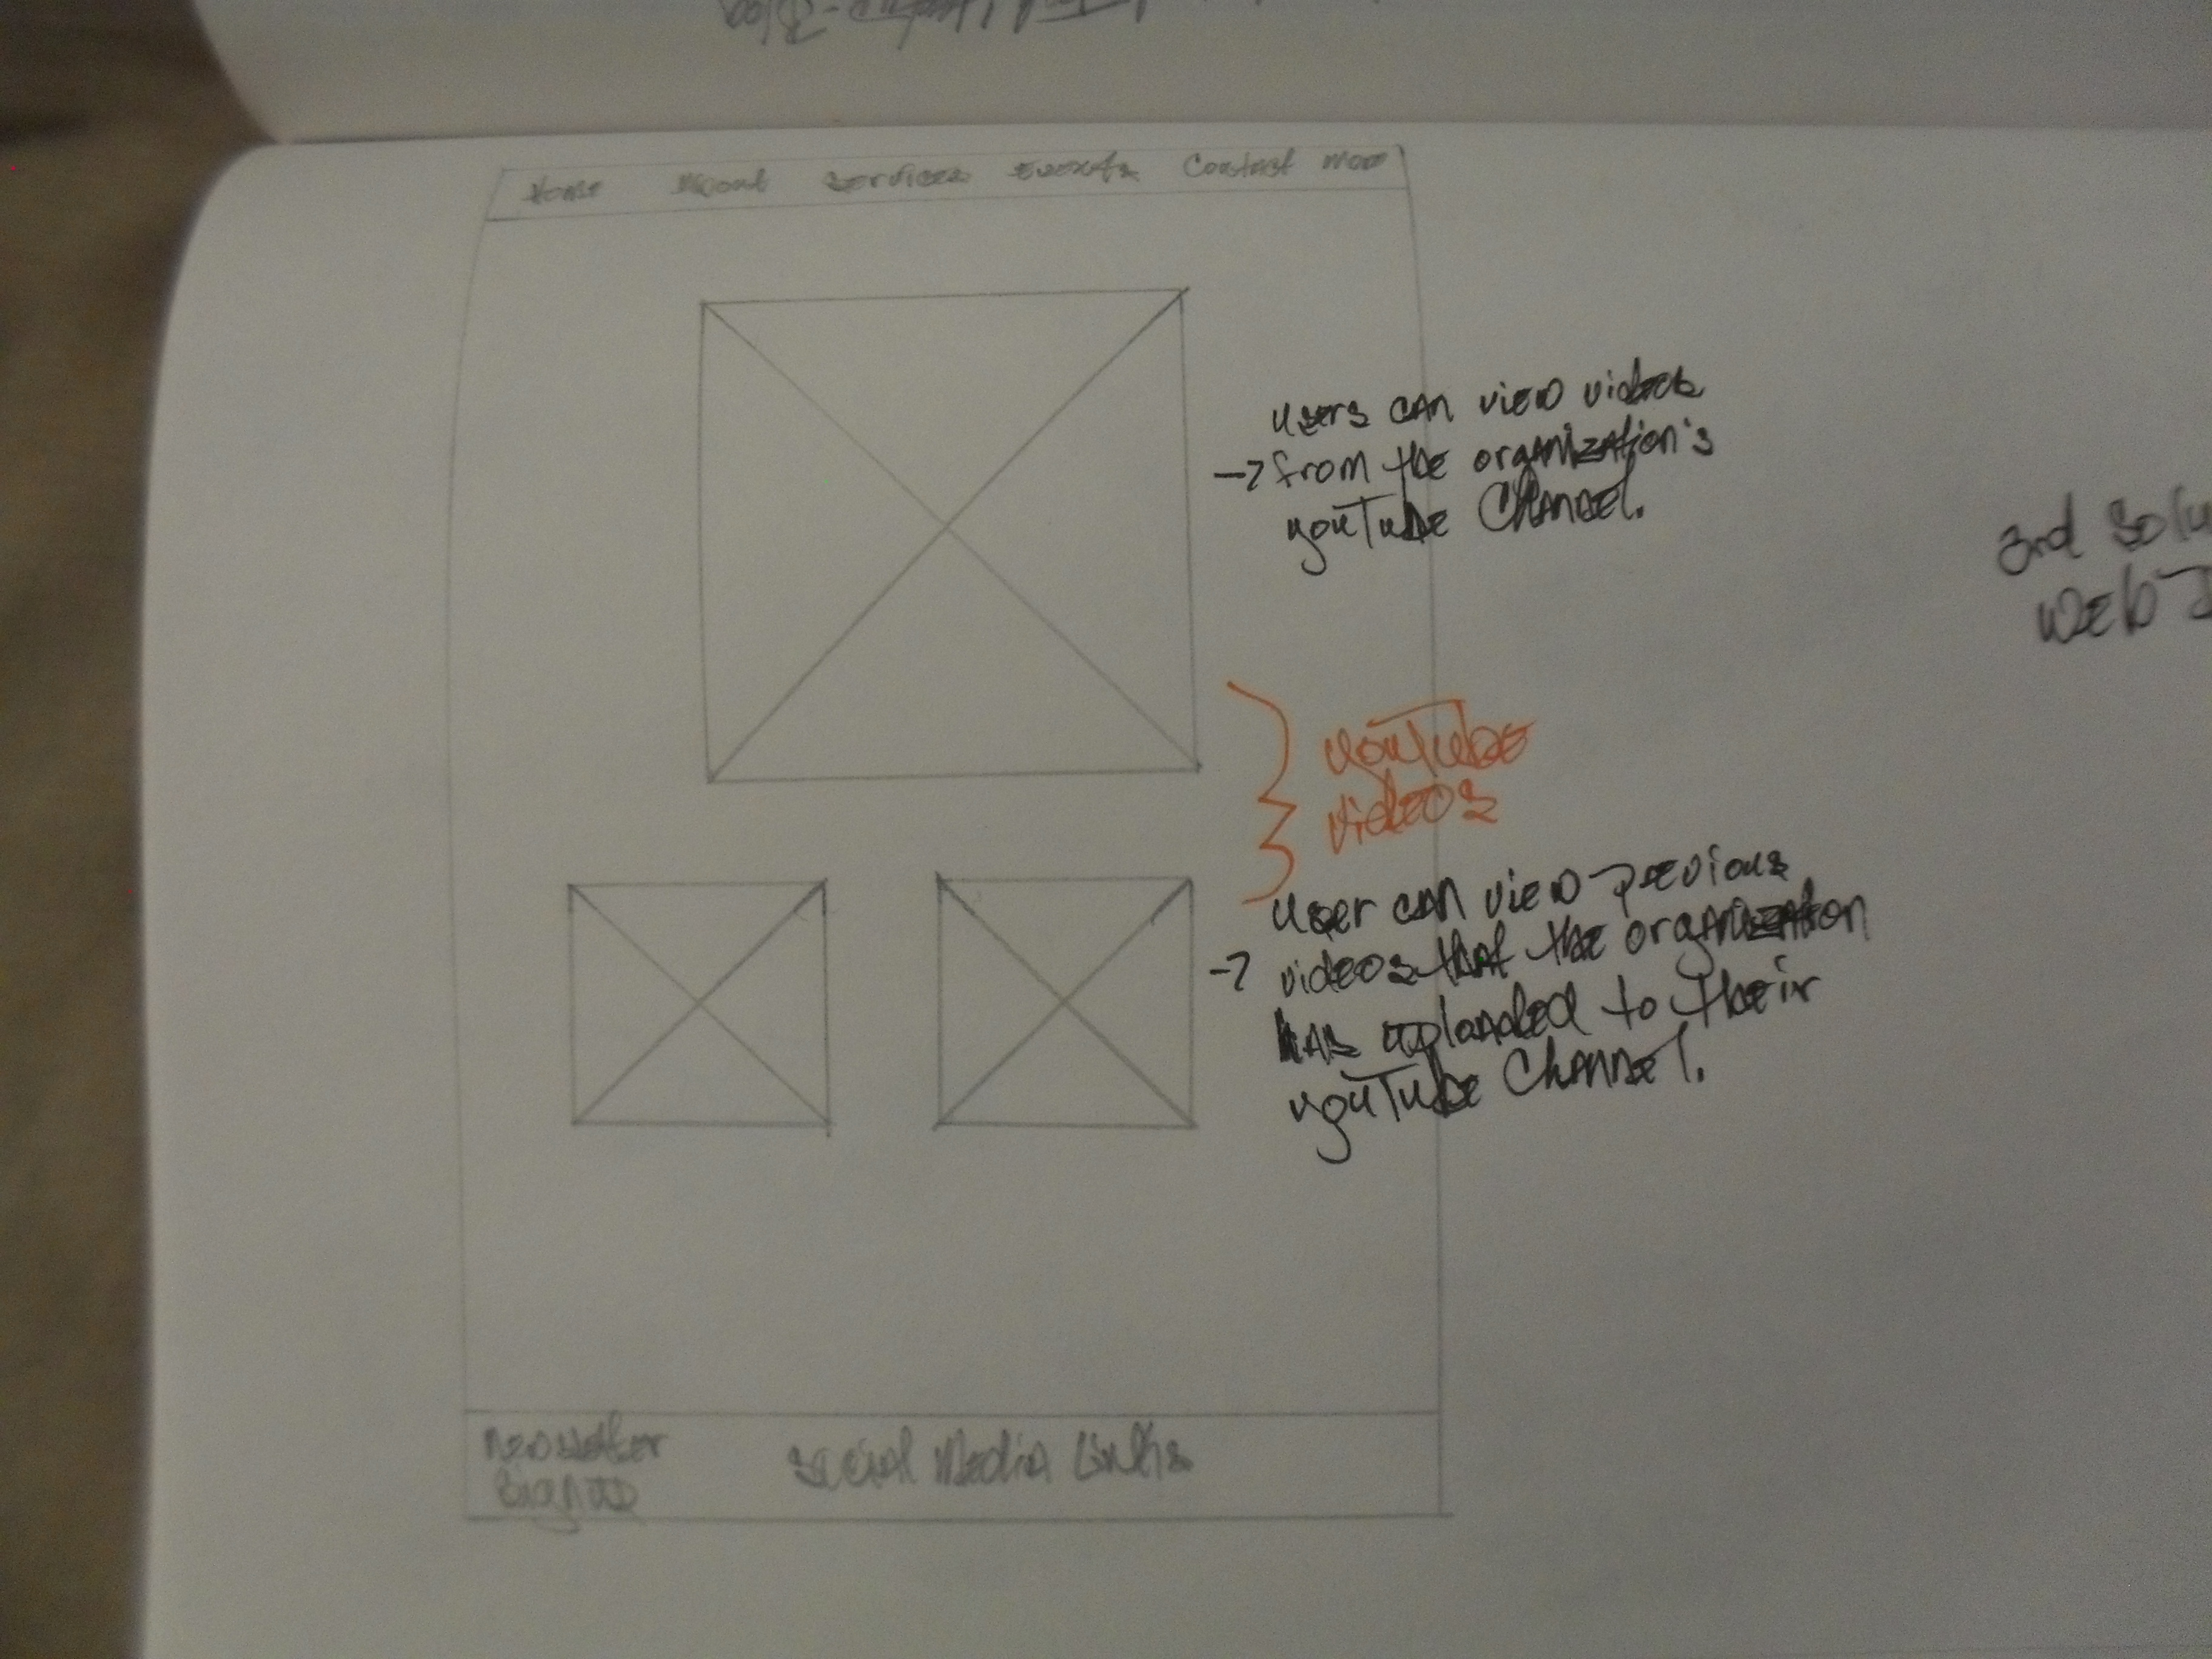 Home About Services Events Contact more
users can view videos
→ from the organization's
youTube Channel.
3rd
Web
youTube
videos
user can view previous
→ videos that the organization
has uploaded to their
youTube Channel.
newsletter
Sign up
Social Media Links